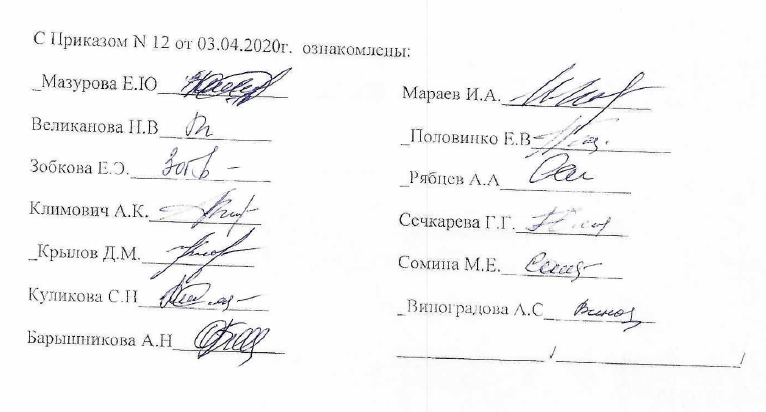 С Приказом N 12 от 03.04.2020г. ознакомлены:
_Мазурова Е.Ю
Великанова Н.В
Зобкова Е.Э.
Климович А.К.
_Крылов Д.М.
Куликова С.Н
Барышникова А.Н
Мараев И.А.
_Половинко Е.В
_Рябцев А.А
Сечкарева Г.Г.
Сомина М.Е.
_Виноградова А.С
/ /